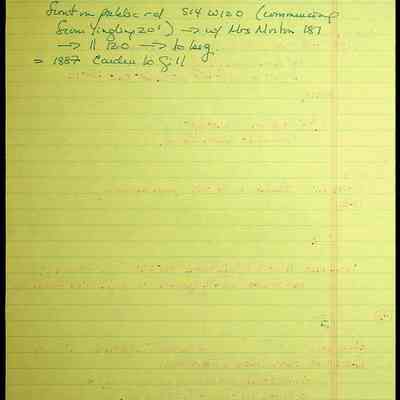 Front on public rd S14 W120 (commencing
from Yingling 20') → w/ Mrs Norton 187
→ 11 120 → to beg.
= 1887 Carden to Gill